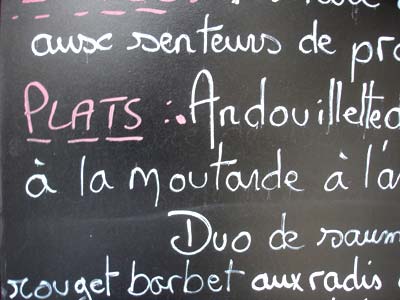 aux senteurs de pro
PLATS : Andouillette d
à la moutarde à l'a
Duo de saum
rouget barbet aux radis